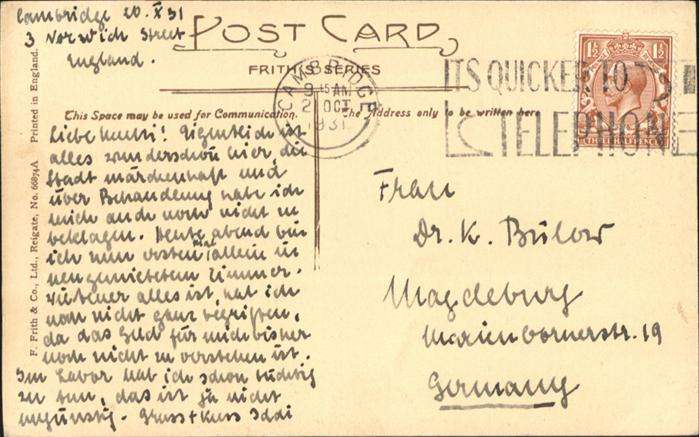 Cambridge 20. X 31
3 Norwich Street
England.
POST CARD
FRITH'S SERIES
This Space may be used for Communication.
The Address only to be written here
CAMBRIDGE
9 15 AM
2 OCT
1931
ITS QUICKER TO
TELEPHONE
1½ 1½
F. Frith & Co., Ltd., Reigate, No. 66874A Printed in England.
Liebe Mutti! Eigentlich ist
alles wunderschön hier, die
Stadt märchenhaft und
über Behandlung habe ich
mich auch noch nicht zu
beklagen. Heute abend bin
ich zum ersten Mal allein im
neugemieteten Zimmer.
Wie teuer alles ist, hab ich
noch nicht ganz begriffen,
da das Geld für mich bisher
noch nicht zu verstehen ist.
Im Labor hab ich schon tüchtig
zu tun, das ist ja nicht
ungünstig. Gruss + Kuss
Frau
Dr. K. Bülow
Magdeburg
str. 19
Germany